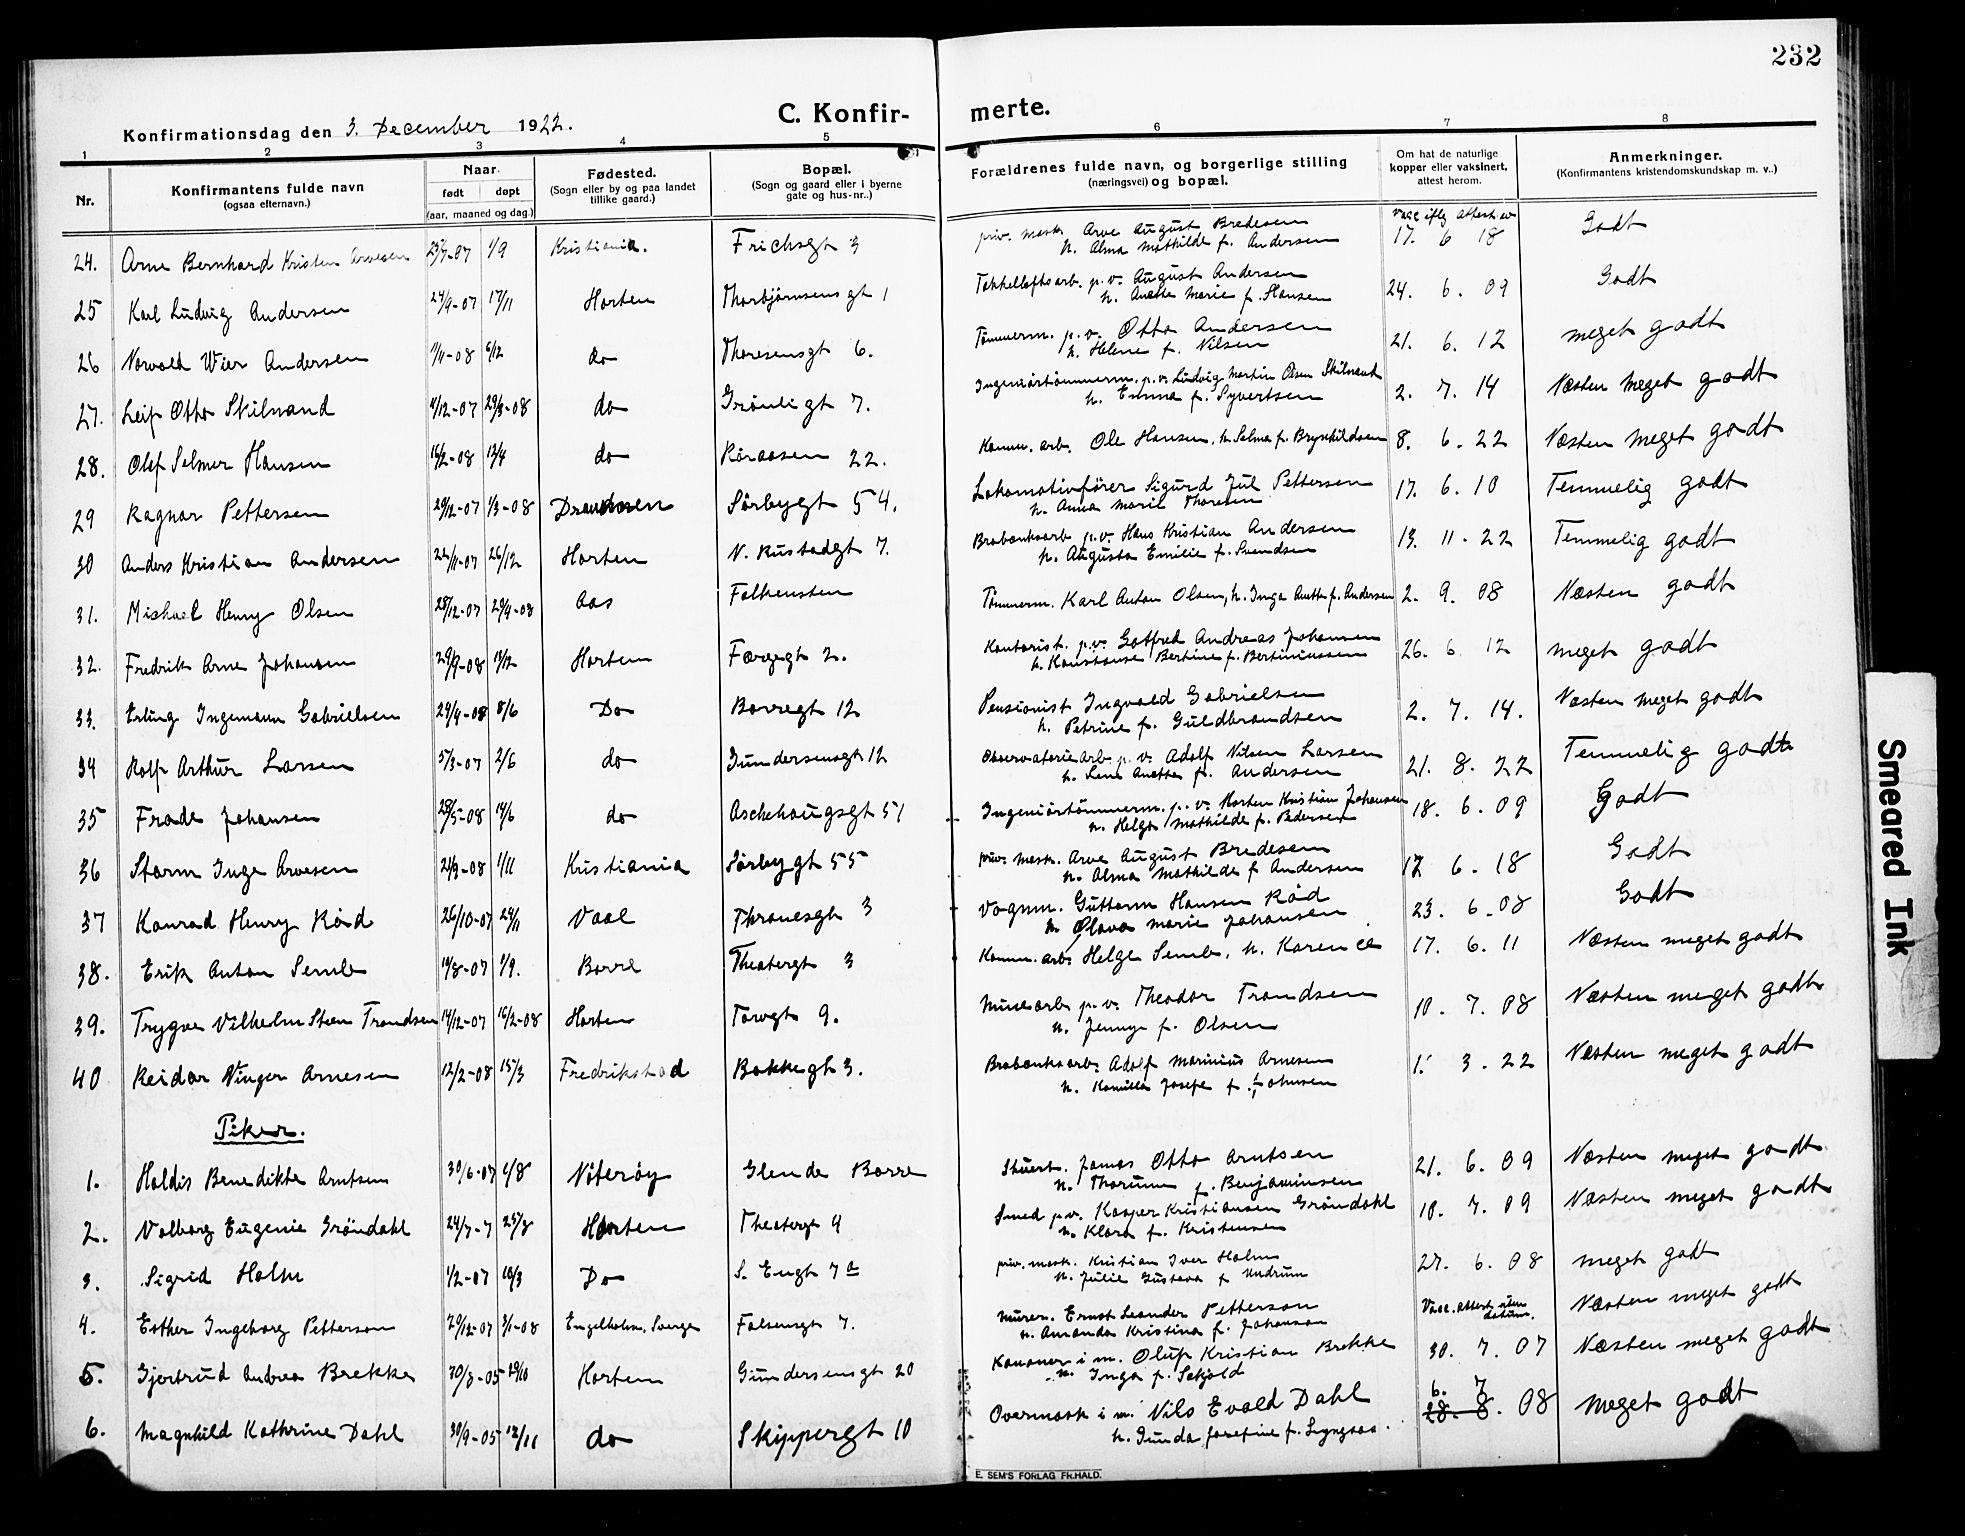 232
Konfirmationsdag den 3. December 1922.
C. Konfirmerte.
1 2 3 4 5 6 7 8
Nr.
Konfirmantens fulde navn
(ogsaa efternavn.)
Naar
født døpt
(aar, maaned og dag.)
Fødested.
(Sogn eller by og paa landet
tillike gaard.)
Bopæl.
(Sogn og gaard eller i byerne
gate og hus-nr..)
Forældrenes fulde navn, og borgerlige stilling
(næringsvei) og bopæl.
Om hat de naturlige
kopper eller vaksinert,
attest herom.
Anmerkninger.
(Konfirmantens kristendomskundskap m. v..)
24. Arne Bernhard Kristen Arvesen 1/9 Kristiania. Frichsgt 3 priv. mask. Arve August Bredesen 17. 6 18 Godt
h. Alma Mathilde f. Andersen
25 Karl Ludvig Andersen 24/9-07 17/11 Horten Thorbjørnsensgt 1 Takkelloftsarb. p.v. August Andersen 24. 6. 09 Godt
h. Anette Marie f. Hansen
26 Norvald Wier Andersen 1/11-08 6/12 do Thoresensgt 6. Tømmerm. p.v. Otto Andersen 21. 6. 12 meget godt
h. Helene f. Nilsen
27. Leif Otto Skilnand 4/12-07 29/3-08 do Grønligt 7. Ingeniørtømmerm. p.v. Ludvig Martin Olsen Skilnand 2. 7. 14 Næsten meget godt
h. Emma f. Syvertsen
28. Olaf Selmer Hansen 16/2-08 12/4 do Røraasen 22. Komm. arb. Ole Hansen, h. Selma f. Brynhildsen 8. 6. 22 Næsten meget godt
29 Ragnar Pettersen 29/12-07 1/3-08 Drammen Sørbygt 54. Lokomotivfører Sigurd Jul Pettersen 17. 6. 10 Temmelig godt
h. Anna Marie Thoresen
30 Anders Kristian Andersen 22/11-07 26/12 Horten N. Rustadgt 7. Brobænksarb p.v. Hans Kristian Andersen 13. 11-22 Temmelig godt
h. Augusta Emilie f. Svendsen
31. Michael Henry Olsen 28/12-07 29/4-08 Aas Falkensten Tømmerm. Karl Anton Olsen, h. Inga Anette f. Andersen 2. 9. 08 Næsten godt
32. Fredrik Arne Johansen 29/9-08 13/12 Horten Færgegt 2. Kontorist. p.v. Gotfred Andreas Johansen 26. 6 12 meget godt
h. Konstanse Bertine f. Bertiniussen
33. Erling Ingemann Gabrielsen 29/4-08 8/6 Do Borregt 12 Pensionist Ingvald Gabrielsen 2. 7. 14. Næsten meget godt
h. Petrine f. Guldbrandsen
34 Rolf Arthur Larsen 5/3-07 2/6 do Gundersensgt 12 Observatoriearb. p.v. Adolf Nilsen Larsen 21. 8. 22 Temmelig godt
h. Lena Anette f. Andersen
35 Frode Johansen 28/5-08 14/6 do Aschehougsgt 51 Ingeniørtømmerm. p.v. Morten Kristian Johansen 18. 6. 09 Godt
h. Helga Mathilde f. Pedersen
36 Storm Inge Arvesen 21/9-08 1/11 Kristiania Sørbygt 55 priv. mask. Arve August Bredesen 17 6. 18 Godt
h. Alma Mathilde f Andersen
37 Konrad Henry Rød 26/10-07 24/11 Vaal Thranesgt 3 Vognm. Guttorm Hansen Rød 23. 6.08 Godt
h. Olava Marie Johansen
38. Erik Anton Semb 14/8-07 1/9. Borre Theatergt 3 Komm. arb. Helge Semb, h. Karen 17. 6. 11 Næsten meget godt
39. Trygve Vilhelm Steen Trondsen 14/12-07 16/2-08 Horten Torvgt 9. Minearb p.v. Theodor Trondsen 10. 7. 08 Næsten meget godt
h. Jenny f. Olsen
40 Reidar Winger Arnesen 12/2-08 15/3 Fredrikstad Bakkegt 3. Brobænksarb. Adolf Marinius Arnesen 1. 3. 22 Næsten meget godt
h. Kamilla Josefe f. Johnsen
Piker.
1. Haldis Benedikte Arntsen 30/6-07 Nøterøy Glende Borre Stuert. Jonas Otto Arntsen 21. 6. 09 Næsten meget godt
h. Thorunn f. Benjaminsen
2. Valborg Eugenie Grøndahl 24/7-7 25/8 Horten Theatergt 4 Smed p.v. Kasper Kristiansen Grøndahl 10. 7. 09 Næsten meget godt
h. Klara f. Kristensen
3. Sigrid Holm 1/2-07 10/3 Do S. Engt 7a priv. mask. Kristian Iver Holm 27. 6. 08 meget godt
h. Julie Gustava f Undrum
4. Esther Ingeborg Petterson 20/12-07 3/1-08 Engelholm, Sverge Falsensgt 7. Murer. Ernst Leander Petterson Vacc. attest uten Næsten meget godt
h. Amanda Kristina f. Johanson datum.
5. Gjertrud Andrea Brekke 30/8-05 29/10 Horten Gundersensgt 20 Kanoner i m. Oluf Kristian Brekke 30. 7. 07 Næsten meget godt
h. Inga f. Sehjold
6. Magnhild Kathrine Dahl 30/9-05 12/11 do Skippergt 10 Overmask i m. Nils Evald Dahl 6. 7 28. 8. 08 meget godt
h. Gunda Josefine f. Lyngaas.
E. SEM'S FORLAG FR.HALD.
Smeared Ink